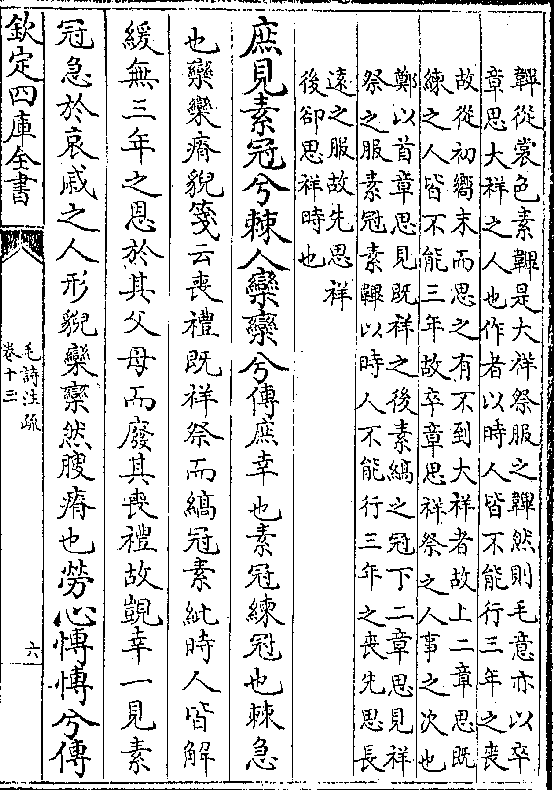 韠從裳色素韠是大祥祭服之韠然則毛意亦以卒
章思大祥之人也作者以時人皆不能行三年之喪
故從初嚮末而思之有不到大祥者故上二章思既
練之人皆不能三年故卒章思祥祭之人事之次也
鄭以首章思見既祥之後素縞之冠下二章思見祥
祭之服素冠素韠以時人不能行三年之喪先思長
遠之服故先思祥
後卻思祥時也
庶見素冠兮棘人欒欒兮傳庶幸也素冠練冠也棘急
也欒欒瘠貌箋云喪禮既祥祭而縞冠素紕時人皆解
緩無三年之恩於其父母而廢其喪禮故覬幸一見素
冠急於哀戚之人形貌欒欒然膄瘠也勞心慱慱兮傳
欽定四庫全書
毛詩注疏
卷十三
六